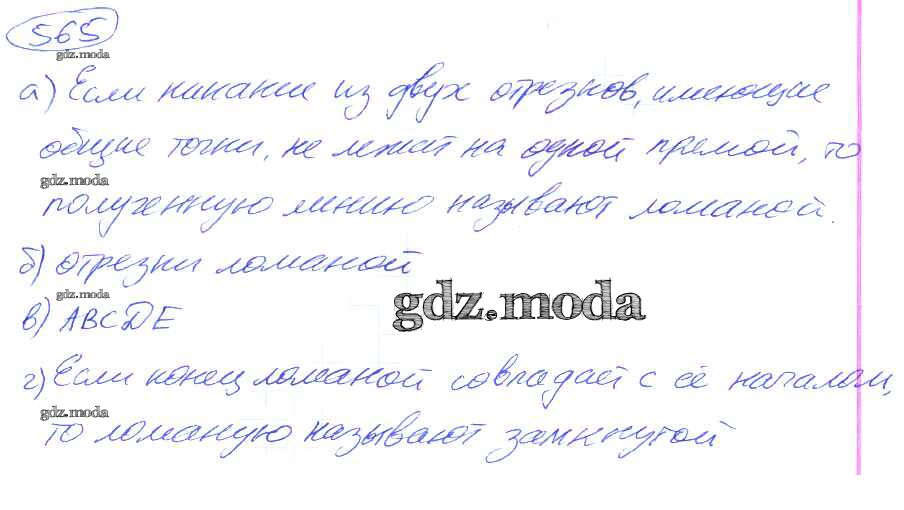 565
gdz.moda
а) Если никакие из двух отрезков, имеющие
общие точки, не лежат на одной прямой, то
gdz.moda
полученную линию называют ломаной.
б) отрезки ломаной
gdz.moda
gdz.moda
в) ABCDE
г) Если конец ломаной совпадает с её началом,
gdz.moda
то ломаную называют замкнутой